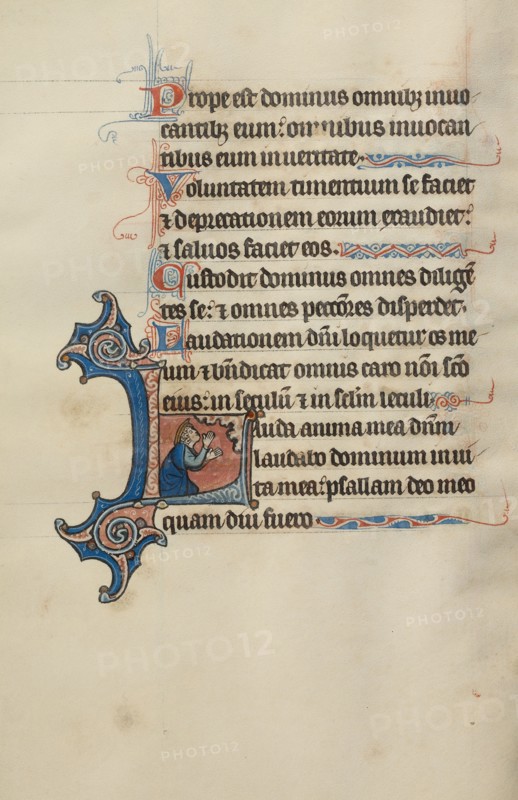 Prope est dominus omnibꝫ inuo
cantibꝫ eum: omnibus inuocan
tibus eum in ueritate.
Voluntatem timentium se faciet
⁊ deprecationem eorum exaudiet:
⁊ saluos faciet eos.
Custodit dominus omnes diligē
tes se: ⁊ omnes peccōres disperdet.
Laudationem dn̄i loquetur os me
um ⁊ bn̄dicat omnis caro nōi scō
eius: in seculū ⁊ in sclm̄ seculi
Lauda anima mea dn̄m
laudabo dominum in ui
ta mea: psallam deo meo
quam diu fuero.
PHOTO12